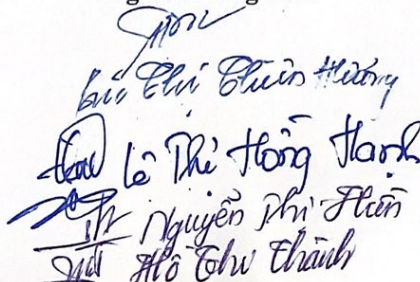 Thị Thiên Hương
Lê Thị Hồng Hạnh
Nguyễn Thị Hân
Hồ Thu Thành